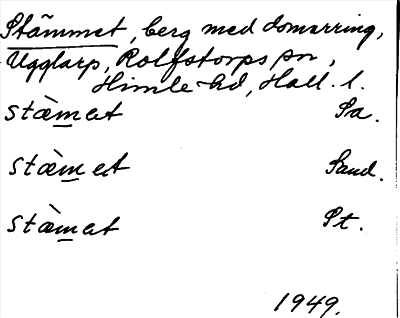 Stämmet, berg med domarring,
Ugglarp, Rolfstorps sn,
Himle hd, Hall. l.
stæ̀mat Sa.
stæ̀met Sand.
stæ̀mat St.
1949.